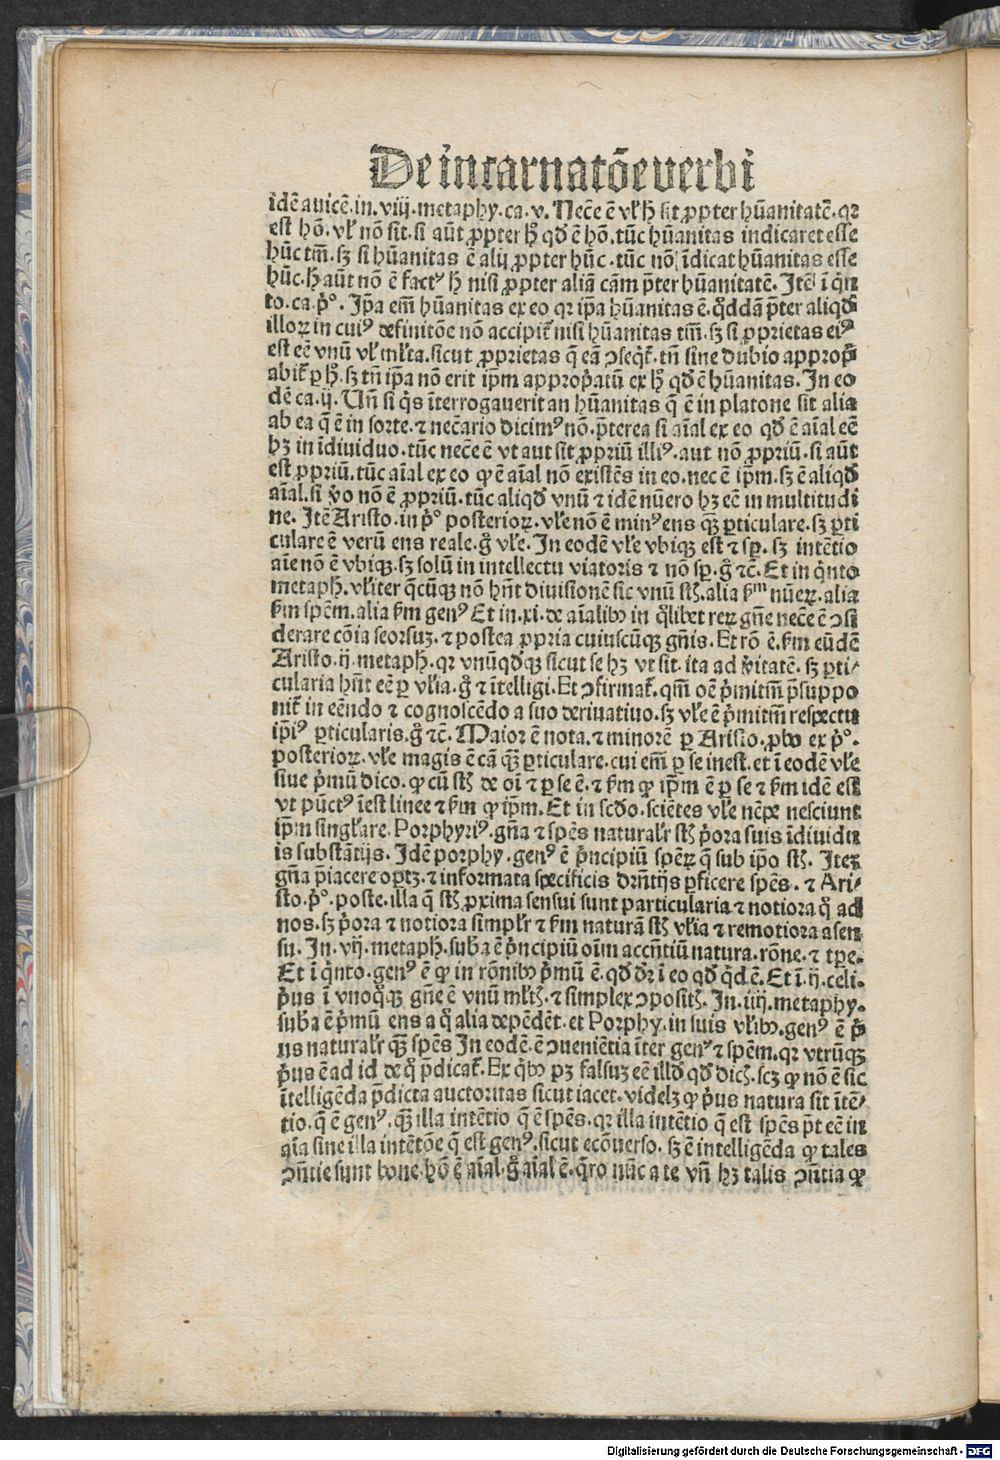 De incarnatōe verbi
idē auicē.in.viij.metaphy.ca.v. Necē ē vl' h̄ sit ꝓpter hūanitatē.qꝛ
est hō.vl' nō sit.si aūt ꝓpter hͦ qd̄ ē hō.tūc hūanitas indicaret esse
hūc tm̄.sꝫ si hūanitas ē alij ꝓpter hūc.tūc nō īdicat hūanitas esse
hūc.h̄ aūt nō ē factꝰ h̄ nisi ꝓpter aliā cām p̄ter hūanitatē. Itē ī qͥn
to.ca.pͦ. Ip̄a em̄ hūanitas ex eo qꝛ ip̄a hūanitas ē.qͦddā p̄ter aliqd̄
illoꝝ in cuiꝰ definitōe nō accipit̄ nisi hūanitas tm̄.sꝫ si ꝓprietas eiꝰ
est eē vnū vl' ml'ta.sicut ꝓprietas q̄ eā ↄseqͥt̄.tn̄ sine dubio appropͥ
abit̄ ꝑ hͦ.sꝫ tn̄ ip̄a nō erit ip̄m appropͥatū ex hͦ qd̄ ē hūanitas. In eo
dē ca.ij. Un̄ si qͥs īterrogauerit an hūanitas q̄ ē in platone sit alia
ab ea q̄ ē in sorte.⁊ necͣario dicimꝰ nō.p̄terea si aīal ex eo qd̄ ē aīal eē
hꝫ in īdiuiduo.tūc necē ē vt aut sit ꝓpriū illiꝰ.aut nō ꝓpriū.si aūt
est ꝓpriū.tūc aīal ex eo ꝙ ē aīal nō existēs in eo.nec ē ip̄m.sꝫ ē aliqd̄
aīal.si v̄o nō ē ꝓpriū.tūc aliqd̄ vnū ⁊ idē nūero hꝫ eē in multitudi
ne. Itē Aristo.in pͦ posterioꝝ.vl'e nō ē minꝰ ens qͣꝫ ꝑticulare.sꝫ ꝑti
culare ē verū ens reale.gͦ vl'e. In eodē vl'e vbiqꝫ est ⁊ sꝑ.sꝫ intētio
aīe nō ē vbiqꝫ.sꝫ solū in intellectu viatoris ⁊ nō sꝑ.gͦ ⁊c̄. Et in qͥnto
metaph̄.vl'iter qͨūqꝫ nō hn̄t diuisionē sic vnū st̄.alia fͫ nūeꝝ.alia
fm̄ spēm.alia fm̄ genꝰ Et in.xi.de aīalibꝰ in qͦlibet reꝝ gn̄e necē ē ↄsi
derare cōia seorsuꝫ.⁊ postea ꝓpria cuiuscūqꝫ gn̄is. Et rō ē.fm̄ eūdē
Aristo.ij.metaph̄.qꝛ vnūqd̄qꝫ sicut se hꝫ vt sit.ita ad v̄itatē.sꝫ ꝑti⸗
cularia hn̄t eē ꝑ vl'ia.gͦ ⁊ ītelligi. Et ↄfirmat̄.qm̄ oē pͥmitm̄ p̄suppo
nit̄ in eēndo ⁊ cognoscēdo a suo deriuatiuo.sꝫ vl'e ē pͥmitm̄ respectu
ip̄iꝰ ꝑticularis.gͦ ⁊c̄. Maior ē nota.⁊ minorē ꝑ Aristo.ꝓbo ex pͦ.
posterioꝝ.vl'e magis ē cā qͣꝫ ꝑticulare.cui em̄ ꝑ se inest.et ī eodē vl'e
siue pͥmū dico.ꝙ cū st̄ de oī ⁊ ꝑ se ē.⁊ fm̄ ꝙ ip̄m ē ꝑ se ⁊ fm̄ idē est
vt pūctꝰ īest linee ⁊ fm̄ ꝙ ip̄m. Et in scd̄o.sciētes vl'e nēpe nesciunt
ip̄m singl'are. Porphyriꝰ.gn̄a ⁊ spēs natural'r st̄ pͥora suis īdiuidu
is substātijs. Idē porphy.genꝰ ē pͥncipiū spēꝝ q̄ sub ip̄o st̄. Iteꝫ
gn̄a p̄iacere optꝫ.⁊ informata specificis drn̄tijs ꝑficere spēs.⁊ Ari⸗
sto.pͦ.poste.illa q̄ st̄ ꝓxima sensui sunt particularia ⁊ notiora qͦ ad
nos.sꝫ pͥora ⁊ notiora simpl'r ⁊ fm̄ naturā st̄ vl'ia ⁊ remotiora a sen
su. In.vij.metaph̄.sub̄a ē pͥncipiū oīm accn̄tiū natura.rōne.⁊ tꝑe.
Et ī qͥnto.genꝰ ē ꝙ in rōnibꝰ pͥmū ē.qd̄ dr̄ ī eo qd̄ qͥd ē. Et ī.ij.celi.
pͥus ī vnoqͦqꝫ gn̄e ē vnū ml't̄.⁊ simplex ↄposit̄. In.iiij.metaphy.
sub̄a ē pͥmū ens a qͦ alia depēdēt.et Porphy.in suis vl'ibꝰ.genꝰ ē pͥ
us natural'r qͣꝫ spēs In eodē.ē ↄueniētia īter genꝰ ⁊ spēm.qꝛ vtrūqꝫ
pͥus ē ad id de qͦ p̄dicat̄. Ex qͥbꝰ pꝫ falsuꝫ eē illd̄ qd̄ dic̄.scꝫ ꝙ nō ē sic
ītelligēda p̄dicta auctoritas sicut iacet.videlꝫ ꝙ pͥus natura sit ītē⸗
tio.q̄ ē genꝰ.qͣꝫ illa intētio q̄ ē spēs.qꝛ illa intētio q̄ est spēs p̄t eē in
aīa sine illa intētōe q̄ est genꝰ.sicut ecōuerso.sꝫ ē intelligēda ꝙ tales
ↄn̄tie sunt bone.hō ē aīal.gͦ aīal ē.qͦro nūc a te vn̄ hꝫ talis ↄn̄tia ꝙ
Digitalisierung gefördert durch die Deutsche Forschungsgemeinschaft - DFG